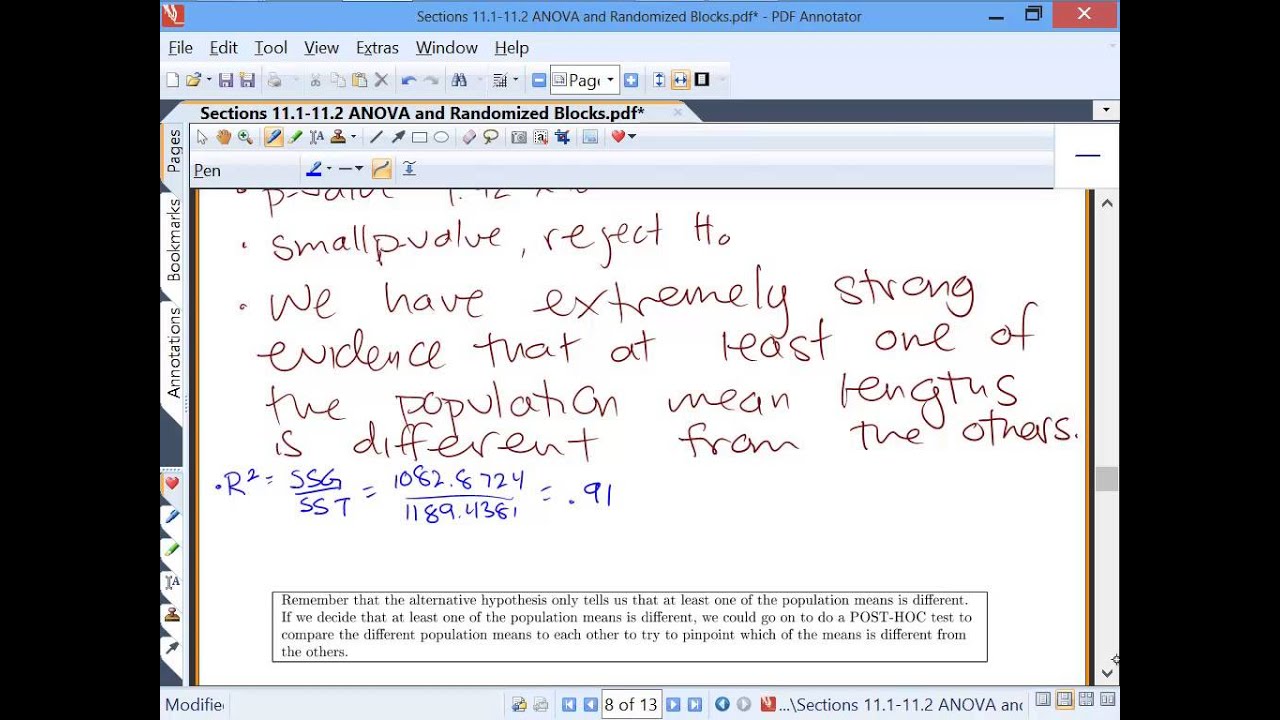 Sections 11.1-11.2 ANOVA and Randomized Blocks.pdf* - PDF Annotator
File Edit Tool View Extras Window Help
Page
Sections 11.1-11.2 ANOVA and Randomized Blocks.pdf*
Pen
Pages
Bookmarks
Annotations
• p-value
• small p-value, reject H₀
• We have extremely strong
evidence that at least one of
the population mean lengths
is different from the others.
• R² = SSG/SST = 1082.8724/1189.4381 = .91
Remember that the alternative hypothesis only tells us that at least one of the population means is different.
If we decide that at least one of the population means is different, we could go on to do a POST-HOC test to
compare the different population means to each other to try to pinpoint which of the means is different from
the others.
Modifie 8 of 13 ...\Sections 11.1-11.2 ANOVA and